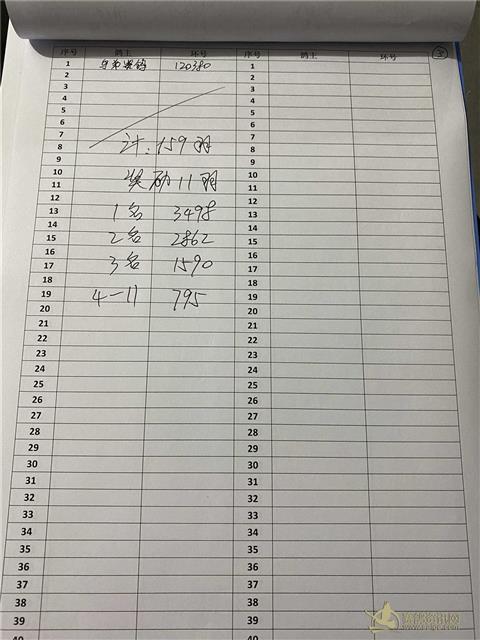 序号 鸽主 环号 序号 鸽主 环号
③
1 兄弟赛鸽 120380 1
2 2
3 3
4 4
5 5
6 6
7 7
8 计：159羽 8
9 9
10 10
11 奖励11羽 11
12 12
13 1名 3498 13
14 14
15 2名 2862 15
16 16
17 3名 1590 17
18 18
19 4—11 795 19
20 20
21 21
22 22
23 23
24 24
25 25
26 26
27 27
28 28
29 29
30 30
31 31
32 32
33 33
34 34
35 35
36 36
37 37
38 38
39 39
40 40